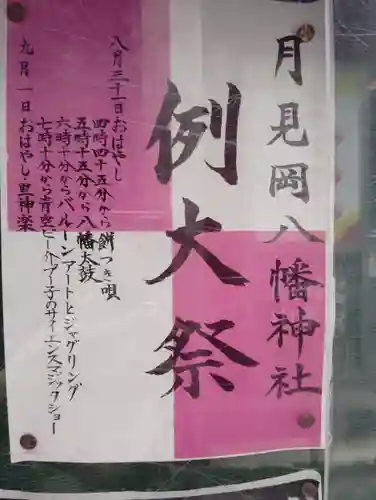 月見岡八幡神社
例大祭
八月三十一日おはやし
四時四十五分から餅つき唄
五時十五分から八幡太鼓
六時十分からバルーンアートとジャグリング
七時十分から青空ピー介アー子のサイエンスマジックショー
九月一日おはやし・里神楽